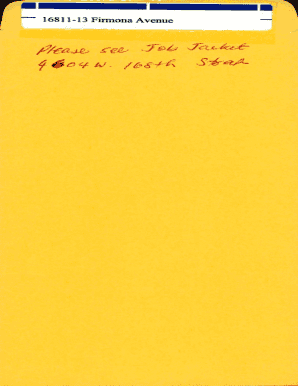 16811-13 Firmona Avenue
Please see Job Jacket
W. 168th